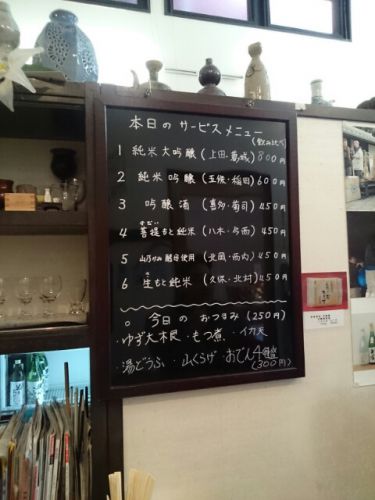 本日のサービスメニュー
(飲み比べ)
1 純米大吟醸 (上田・葛城) 800円
2 純米吟醸 (五條・稲田) 600円
3 吟醸酒 (喜多・菊司) 450円
ぼだい
4 菩提もと純米 (八木・今西) 450円
5 山乃かみ酵母使用 (北岡・西内) 450円
き
6 生もと純米 (久保・北村) 450円
○ 今日の おつまみ (250円)
・ゆず大根・もつ煮・イカ天
・湯どうふ・山くらげ・おでん4種盛
(300円)